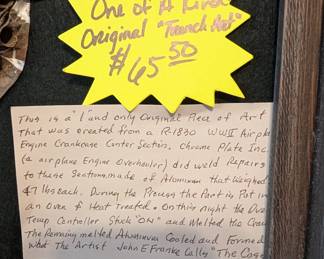 One of A Kind
Original "Trench Art"
$65.50
This is a "1" and only Original Piece of Art
That was created from a R-1830 WWII Airplane
Engine Crankcase Center Section. Chrome Plate Inc
(a airplane Engine Overhauler) did weld Repairs
to these Sections, made of Aluminum that weighed
47 lbs each. During the Process the Part is Put in
an oven & Heat Treated. On this night the Oven
Temp Controller Stuck "ON" and Melted the
The Remaining melted Aluminum Cooled and Formed
What The Artist John E Franke Calls "The